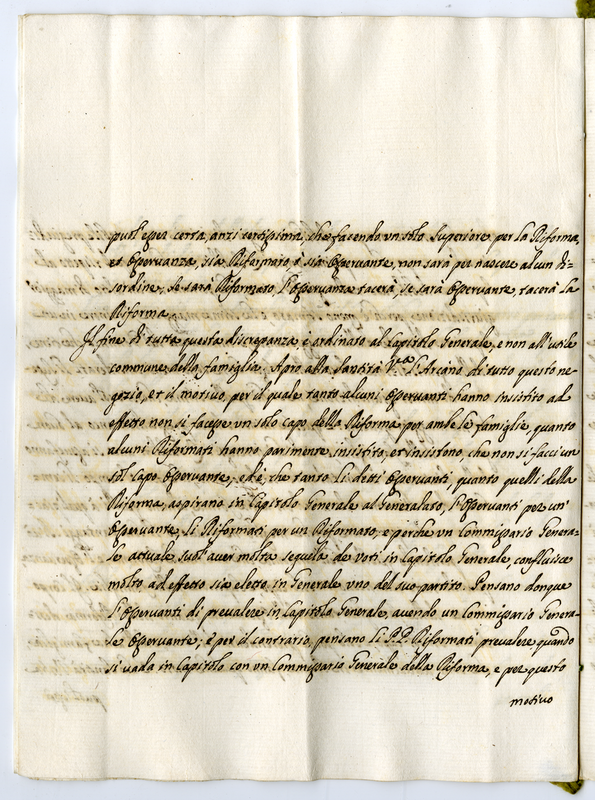 puol esser certa, anzi certissima, che facendo un solo Superiore per la Riforma,
et Osservanza, sia Riformato, ò sia Osservante, non sarà per nascere alcun di=
sordine, se sarà Riformato, l'Osservanza tacerà, se sarà Osservante, tacerà la
Riforma.
Il fine di tutta questa discrepanza è ordinato al Capitolo Generale, e non all'utile
commune della famiglia. Apro alla Santità V.ra l'Arcano di tutto questo ne=
gozio, et il motivo, per il quale tanto alcuni Osservanti hanno insistito ad
effetto non si facesse un solo capo della Riforma per ambe le famiglie, quanto
alcuni Riformati hanno parimente insistito, et insistono, che non si facci un
sol Capo Osservante, ed è, che tanto li detti Osservanti, quanto quelli della
Riforma, aspirano in Capitolo Generale al Generalato, l'Osservanti per un'
Osservante, li Riformati per un Riformato, e perche un Commissario Genera=
le attuale suol aver molta sequela de voti in Capitolo Generale, conflùisce
molto ad effetto sia eletto in Generale uno del suo partito. Pensano donque
l'Osservanti di prevalere in Capitolo Generale, avendo un Commissario Genera=
le Osservante; è per il contrario, pensano li P.P. Riformati prevalere quando
si vada in Capitolo con un Commissario Generale della Riforma, e per questo
motivo